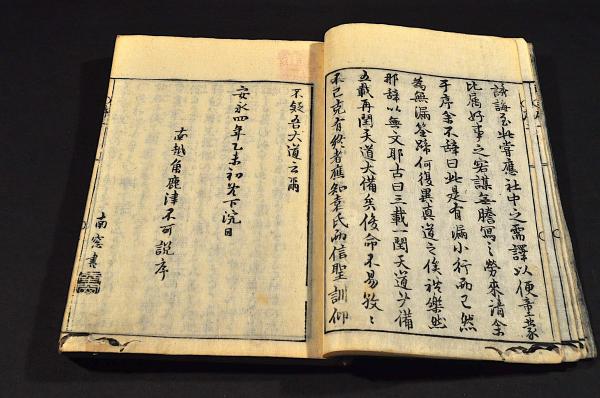 嘗應社中之需譯以便童蒙
比属好事之客謀無謄寫之勞來請余
序余不辭曰此是有漏小行而已然
為無漏筌蹄何復異真道之俟禮樂
那辞以無文耶古曰三載一閏天道少備
五載再閏天道大備矣 命不易
不已克有終者應知袁氏而信聖訓仰
不疑吾大道云爾
安永四年乙未初冬下浣日
南越角鹿津不可説序
南窓書